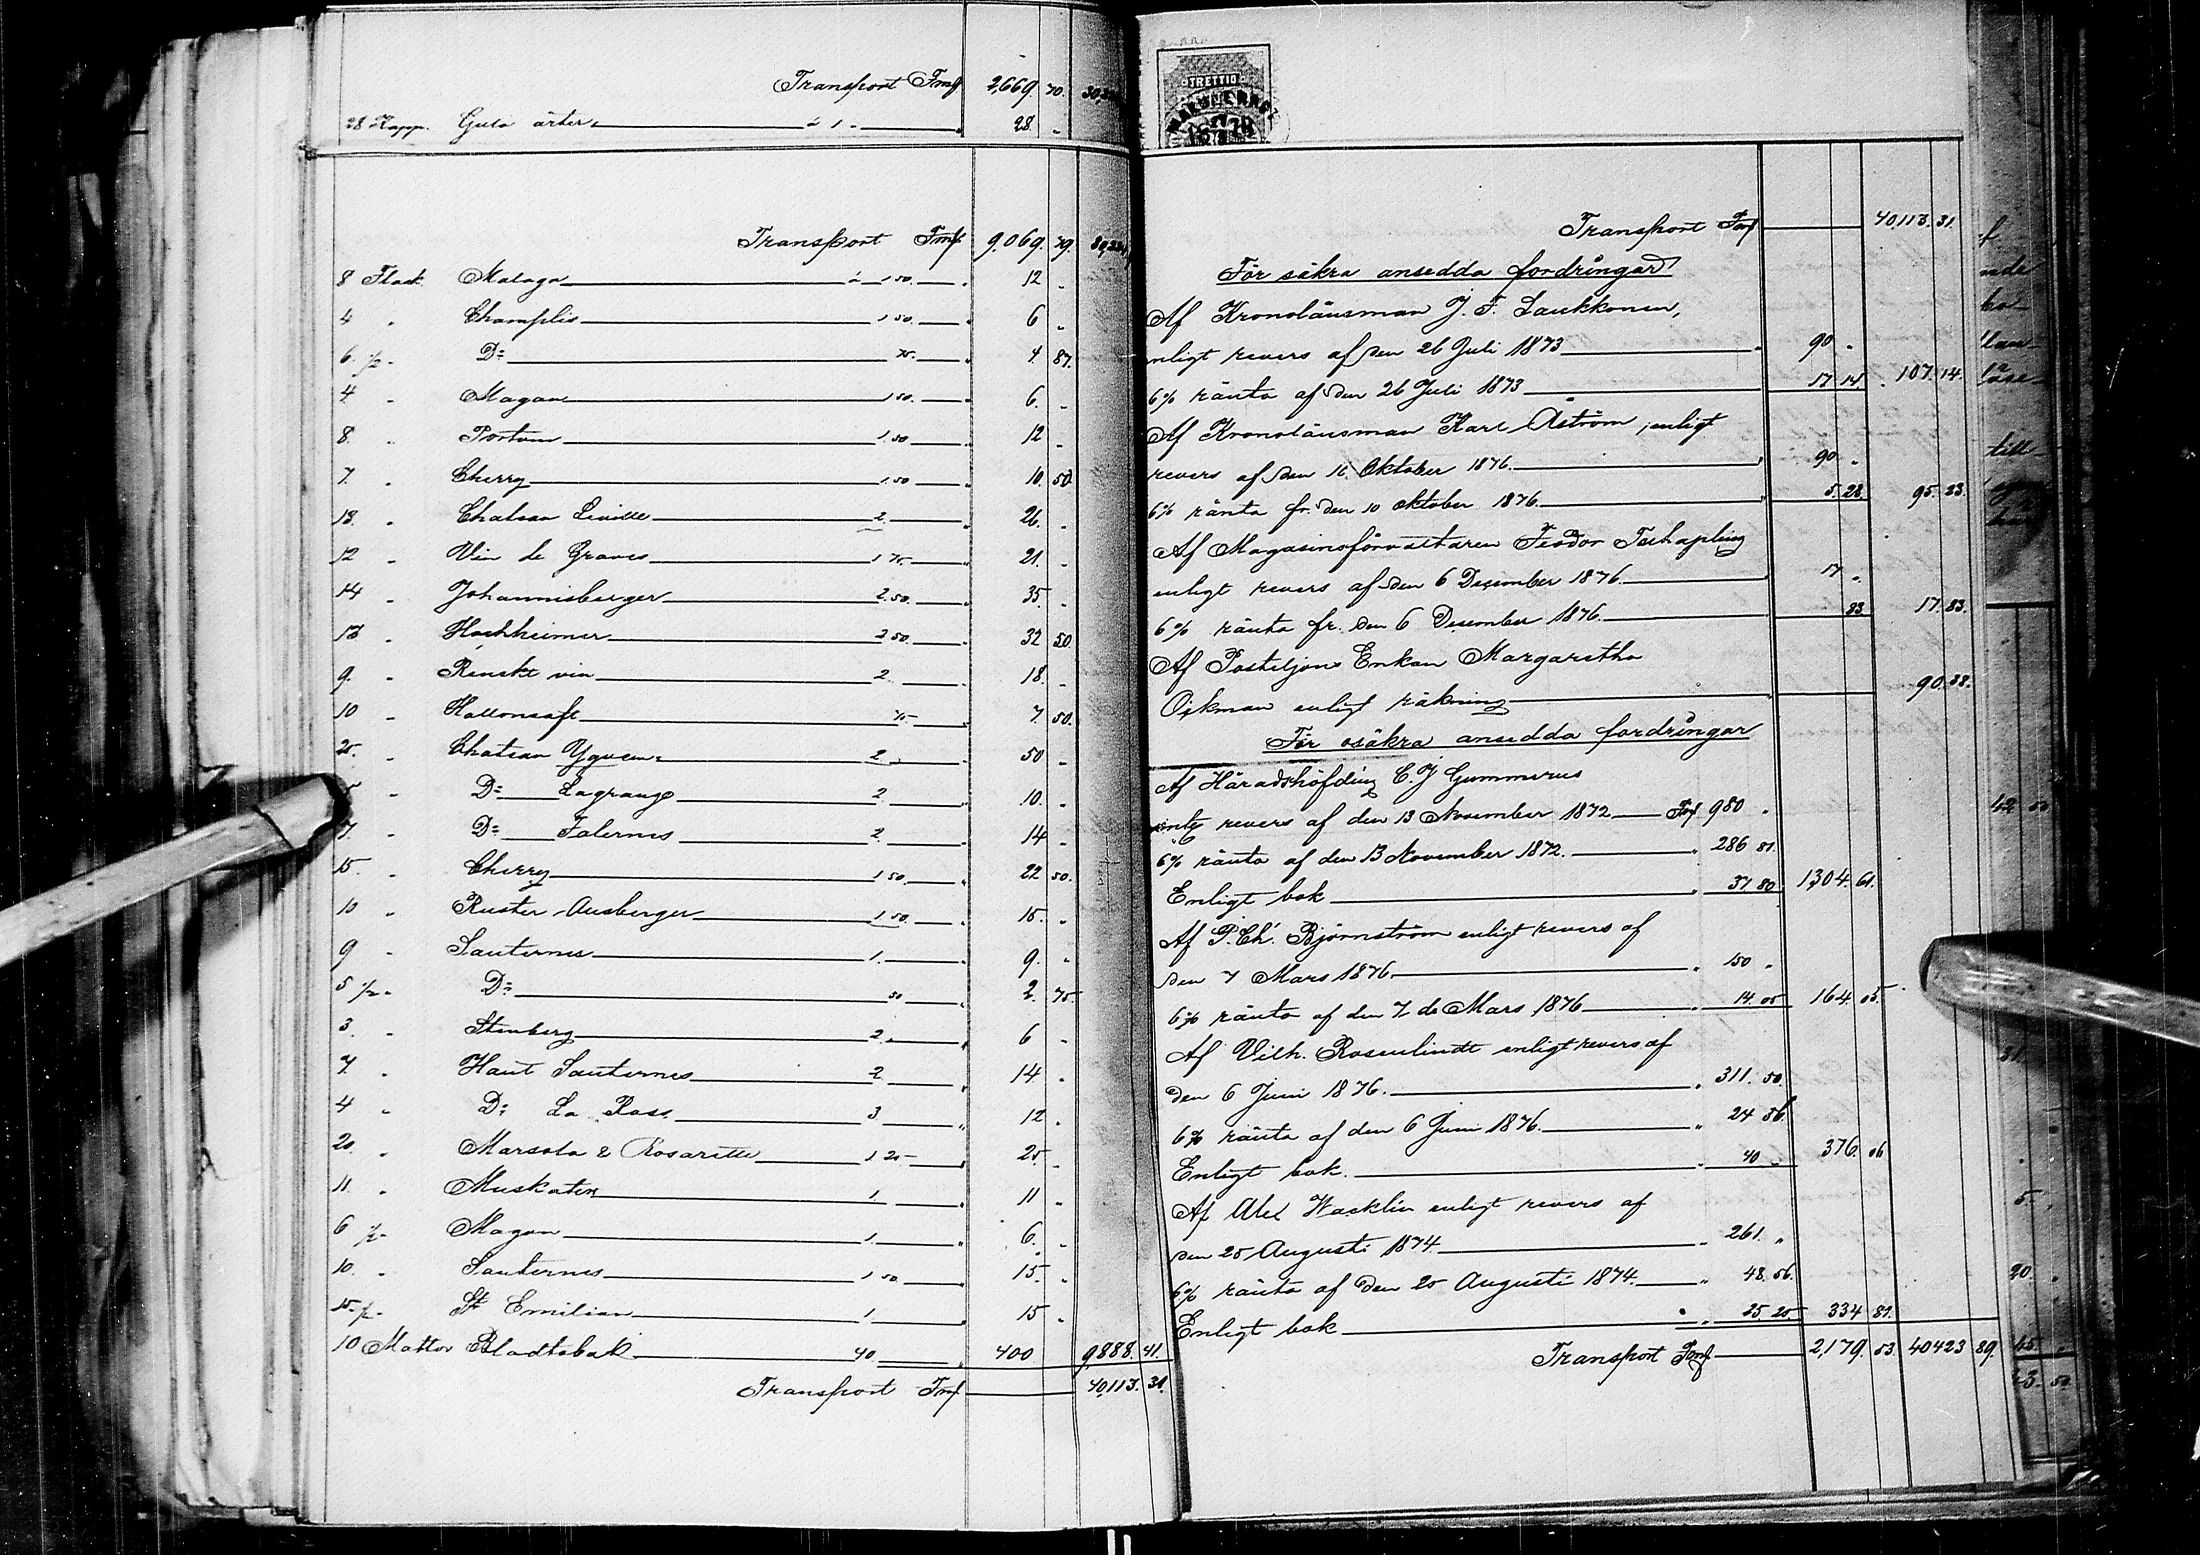 Transport Fmf 2,669. 70.
28 Kapp. Gula ärter à 1 „ 28 „
Transport Fmf 9,069. 79.
8 Flask. Malaga à 1 50. „ 12 „
4 „ Champlis 1 50. „ 6 „
6 ½ „ D:o 75. „ 4 87.
4 „ Magan 1 50. „ 6. „
8. „ Portvin 1 50 „ 12 „
7. „ Cherry 1 50 „ 10. 50
13. „ Chateau Liville 2. „ 26. „
12 „ Vin de Graves 1 75. „ 21. „
14 „ Johannisberger 2.50. „ 35. „
13 „ Hochheimer 2 50. „ 32 50.
9. „ Renskt vin 2. „ 18. „
10 „ Hallonsaft 75 „ 7. 50.
25. „ Chateau Yquem 2 „ 50 „
5 „ D:o Lagrange 2 „ 10. „
7. „ D:o Falernes 2 „ 14 „
15. „ Cherry 1 50. „ 22 50.
10 „ Ruster-Ausberger 1.50. „ 15. „
9 „ Sauternes 1. „ 9. „
5 ½ „ D:o 50 „ 2. 75
3. „ Steinberg 2. „ 6 „
7. „ Haut Sauternes 2 „ 14. „
4 „ D:o La Rose 3 „ 12 „
20. „ Marsala & Rosarette 1 25 „ 25. „
11. „ Muskatin 1 „ 11 „
6 ½ „ Magan 1. „ 6. „
10. „ Sauternes 1 50 „ 15. „
15 ½ „ St Emilian 1 „ 15 „
10 Mattor Bladtobak 40 „ 400 9,888. 41.
Transport Fmf 40,113. 31.
TRETTIO
Transport Fmf 40,113. 31.
För säkra ansedda fordringar
Af Kronolänsman J. F. Laukkonen,
enligt revers af den 26 Juli 1873 „ 90 „
6% ränta af den 26 Juli 1873 17 14. „ 107. 14.
Af Kronolänsman Karl Åström, enligt
revers af den 10 Oktober 1876. „ 90 „
6% ränta fr. den 10 Oktober 1876. „ 5. 23. 95. 23.
Af Magasinsförvaltaren Feodor Tschapling
enligt revers af den 6 December 1876. „ 17 „
6% ränta fr. den 6 December 1876. 83. 17. 83.
Af Postiljons Enkan Margaretha
Öckman enligt räkning „ 90. 38.
För osäkra ansedda fordringar
Af Häradshöfding C. J. Gummerus
enlg revers af den 13 November 1872 Fmf 980 „
6% ränta af den 13 November 1872. „ 286 81.
Enligt bok „ 37 80 1,304. 61.
Af P. Ch. Björnström enligt revers af
den 7 Mars 1876 „ 150 „
6% ränta af den 7 de Mars 1876 „ 14 05 164. 05.
Af Vilh. Rosenlindt enligt revers af
den 6 Juni 1876. „ 311. 50.
6% ränta af den 6 Juni 1876. „ 24 56.
Enligt bok. „ 40 „ 376. 06
Af Alex Wacklin enligt revers af
den 25 Augusti 1874. „ 261. „
6% ränta af den 25 Augusti 1874. „ 48. 56.
Enligt bok „ 25 25 334 81.
Transport Fmf 2,179. 53. 40423 89.